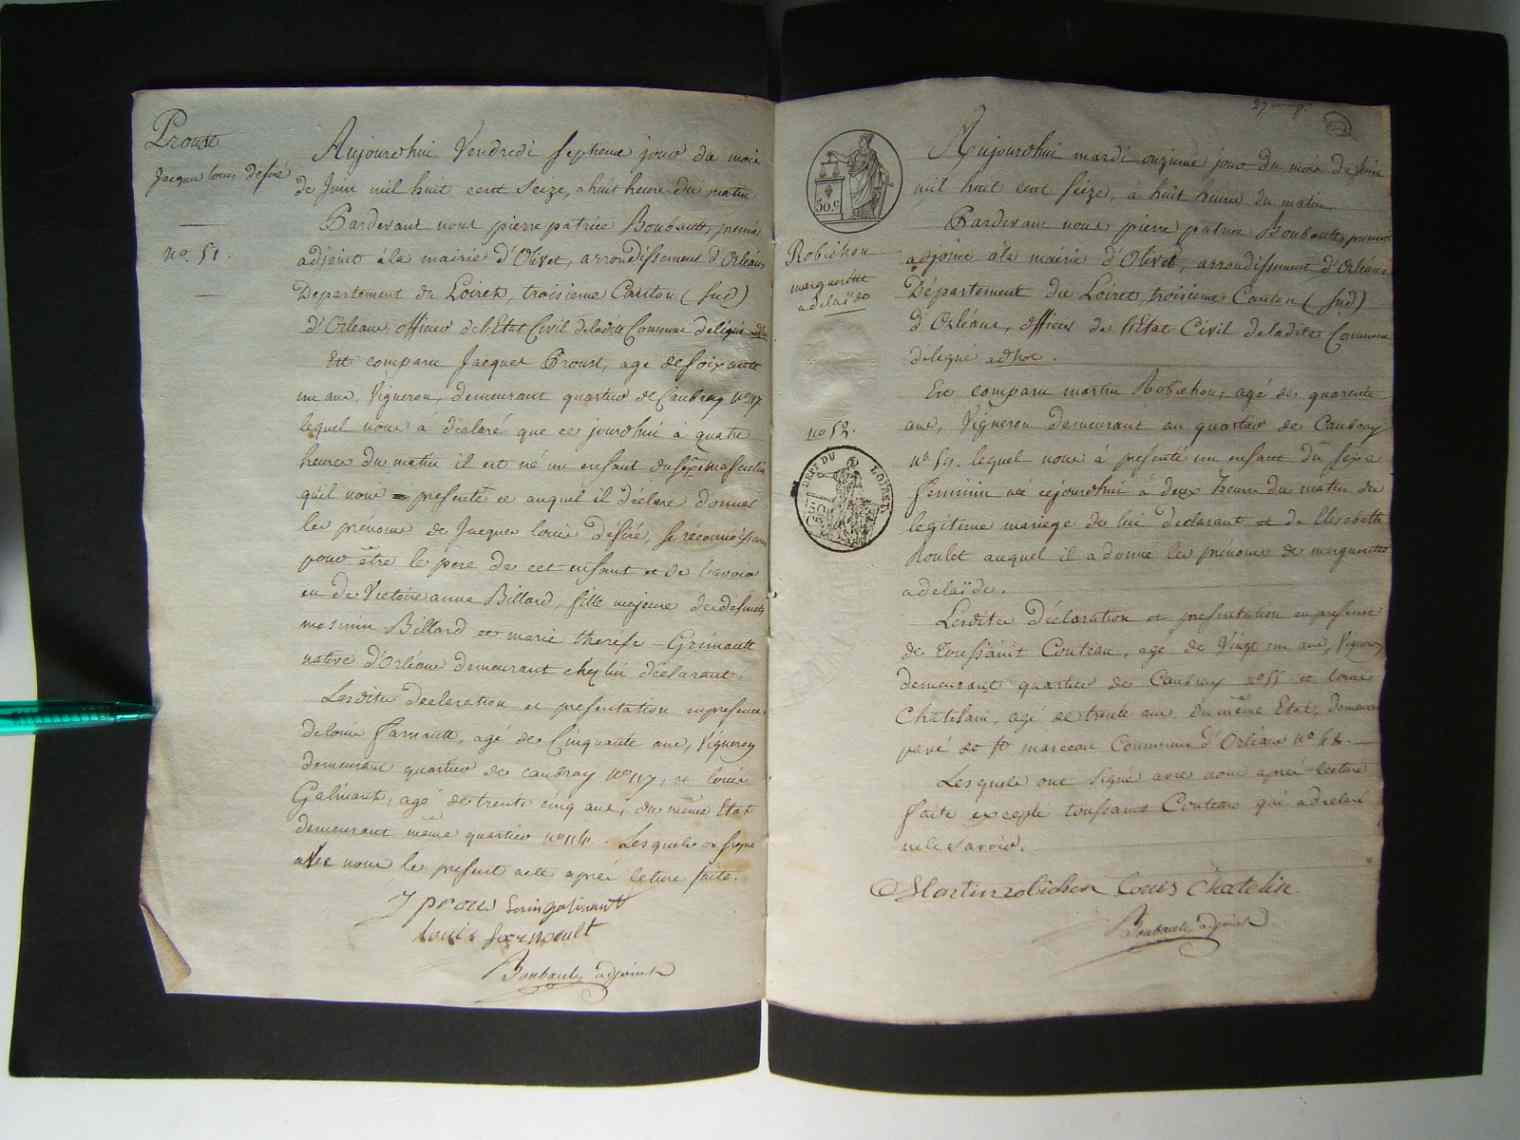 Proust
Jacques louis désiré
no. 51.
Aujourdhui Vendredi septieme jour du mois
de Juin mil huit cent Seize, a huit heure du matin
Pardevant nous pierre patrice Boubault, premier
adjoint à la mairie d'Olivet, arrondissement d'Orléans
Departement du Loiret, troisieme Canton (Sud)
d'Orléans, officier de l'Etat Civil de ladite Commune délégué
Est comparu Jacques Proust, agé de soixante
un ans, Vigneron, demeurant quartier de Caubray no 117
lequel nous à déclaré que ce jourdhui à quatre
heure du matin il est né un enfant du sexe masculin
quil nous présente et auquel il déclare donner
les prénoms de Jacques louis désiré, se réconnoissant
pour être le père de cet enfant et de l'avoir
eu de Victoire anne Billard, fille majeure de défunts
mesmin Billard et marie therese Grimault
native d'Orléans demeurant chez lui déclarant.
Lesdites declaration et présentation en présence
de louis farnault, agé de Cinquante ans, Vigneron
demeurant quartier de caubray no 117, et louis
Galinant, agé de trente cinq ans, du même Etat
demeurant même quartier no 114. Lesquels on signé
avec nous le présent acte après lecture faite.
J prous Louis galinant
louis farnault
Boubault adjoint
27
Robichon
marguerite
adelaïde
no 52.
50. c
DEPT DU LOIRET
Aujourdhui mardi onzieme jour du mois de Juin
mil huit cent Seize, à huit heures du matin
Pardevant nous pierre patrice Boubault, premier
adjoint à la mairie d'Olivet, arrondissement d'Orléans
Département du Loiret, troisieme Canton (Sud)
d'Orléans, officier de l'Etat Civil de ladite Commune
délégué adhoc.
Est comparu martin Robichon, agé de quarante
ans, Vigneron demeurant au quartier de Caubray
no 51. lequel nous à présenté un enfant du sexe
féminin né cejourdhui à deux heure du matin du
légitime mariage de lui déclarant et de Elisabeth
Roulet auquel il a donné les prénoms de marguerite
adelaïde.
Lesdites Déclaration et présentation en présence
de Toussaint Couteau, agé de Vingt un ans, Vigneron
demeurant quartier de Caubray no 55 et louis
Chatelain, agé de trente ans du même Etat, demeurant
pavé de St marceau Commune d'Orléans no 48.
Lesquels ont signé avec nous après lecture
faite excepté toussaint Couteau qui a déclaré
ne le savoir.
Martin robichon Louis Chatelin
Boubault adjoint